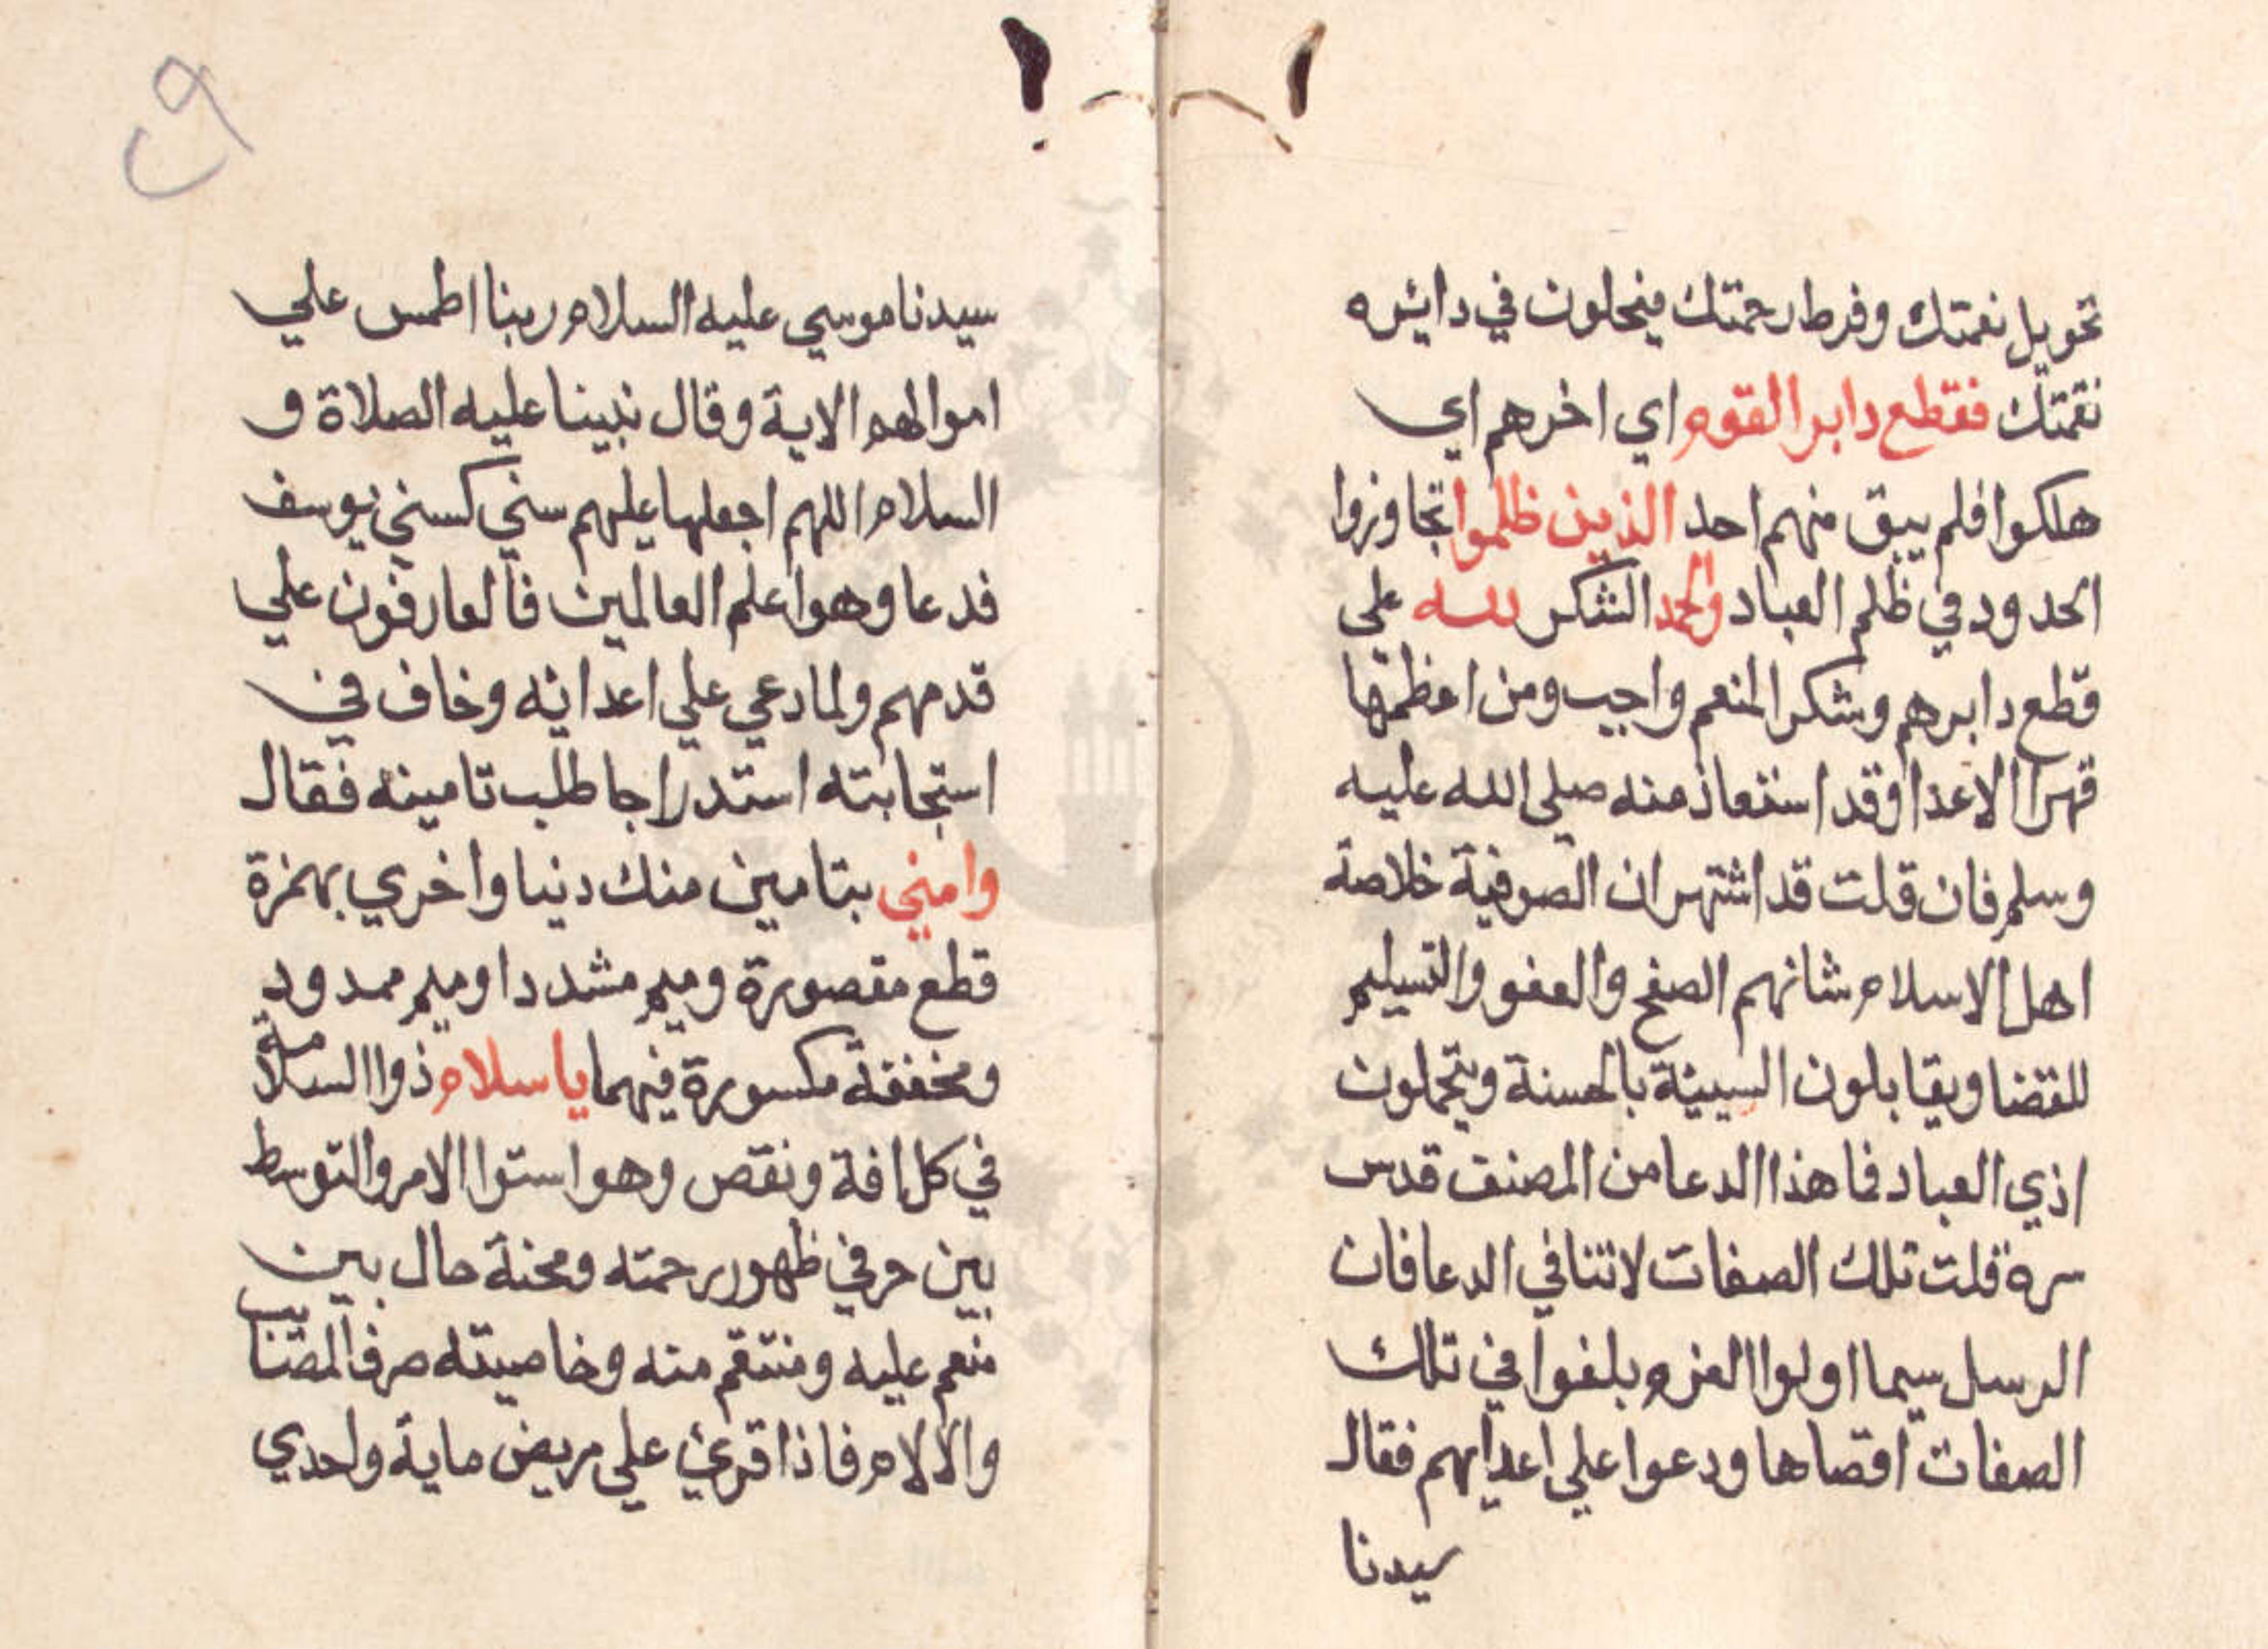 تحويل نعمتك وفرط رحمتك فيحلون في دايره
نقمتك فقطع دابر القوم اي اخرهم اي
هلكوا فلم يبق منهم احد الذين ظلموا تجاوزوا
الحدود في ظلم العباد والحمد الشكر لله علي
قطع دابرهم وشكر المنعم واجب ومن اعظمها
قهر الاعدا وقد استعاذ منه صلى الله عليه
وسلم فان قلت قد اشتهر ان الصوفية خلاصة
اهل الاسلام شانهم الصفح والعفو والتسليم
للقضا ويقابلون السيئة بالحسنة ويتحملون
اذي العباد فما هذا الدعا من المصنف قدس
سره قلت تلك الصفات لا تنافي الدعا فان
الرسل سيما اولوا العزم بلغوا في تلك
الصفات اقصاها ودعوا علي اعدايهم فقال
سيدنا
سيدنا موسي عليه السلام ربنا اطمس علي
اموالهم الاية وقال نبينا عليه الصلاة و
السلام اللهم اجعلها عليهم سني كسني يوسف
فدعا وهو اعلم العالمين فالعارفون علي
قدمهم ولما دعي علي اعدائه وخاف في
استجابته استدراجا طلب تامينه فقال
وامني بتامين منك دنيا واخري بهمزة
قطع مقصورة وميم مشددا وميم ممدود
ومخففة مكسورة فيهما يا سلام ذو السلامة
في كل افة ونقص وهو استوا الامر والتوسط
بين حرفي ظهور رحمته ومحنة حال بين
منعم عليه ومنتقم منه وخاصيته صرف المصائب
والالام فاذا قرئ علي مريض ماية واحدي
٩